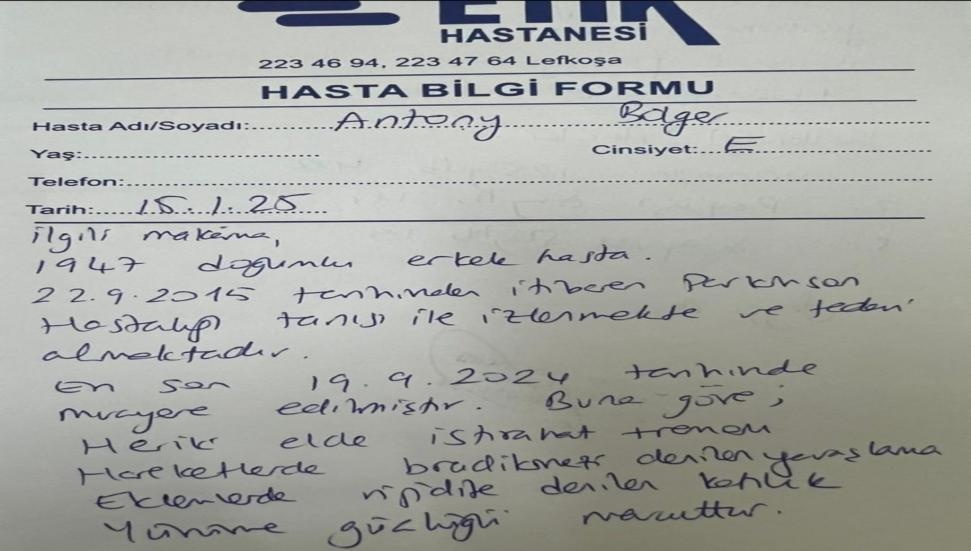 ETİK
HASTANESİ
223 46 94, 223 47 64 Lefkoşa
HASTA BİLGİ FORMU
Hasta Adı/Soyadı: Antony Bolger
Yaş:
Cinsiyet: E
Telefon:
Tarih: 15.1.25
ilgili makama,
1947 doğumlu erkek hasta.
22.9.2015 tarihinden itibaren Parkinson
Hastalığı tanısı ile izlenmekte ve tedavi
almaktadır.
En son 19.9.2024 tarihinde
muayene edilmiştir. Buna göre;
Her iki elde istirahat tremoru
Hareketlerde bradikinezi denilen yavaşlama
Eklemlerde rijidite denilen katılık
Yürüme güçlüğü mevcuttur.